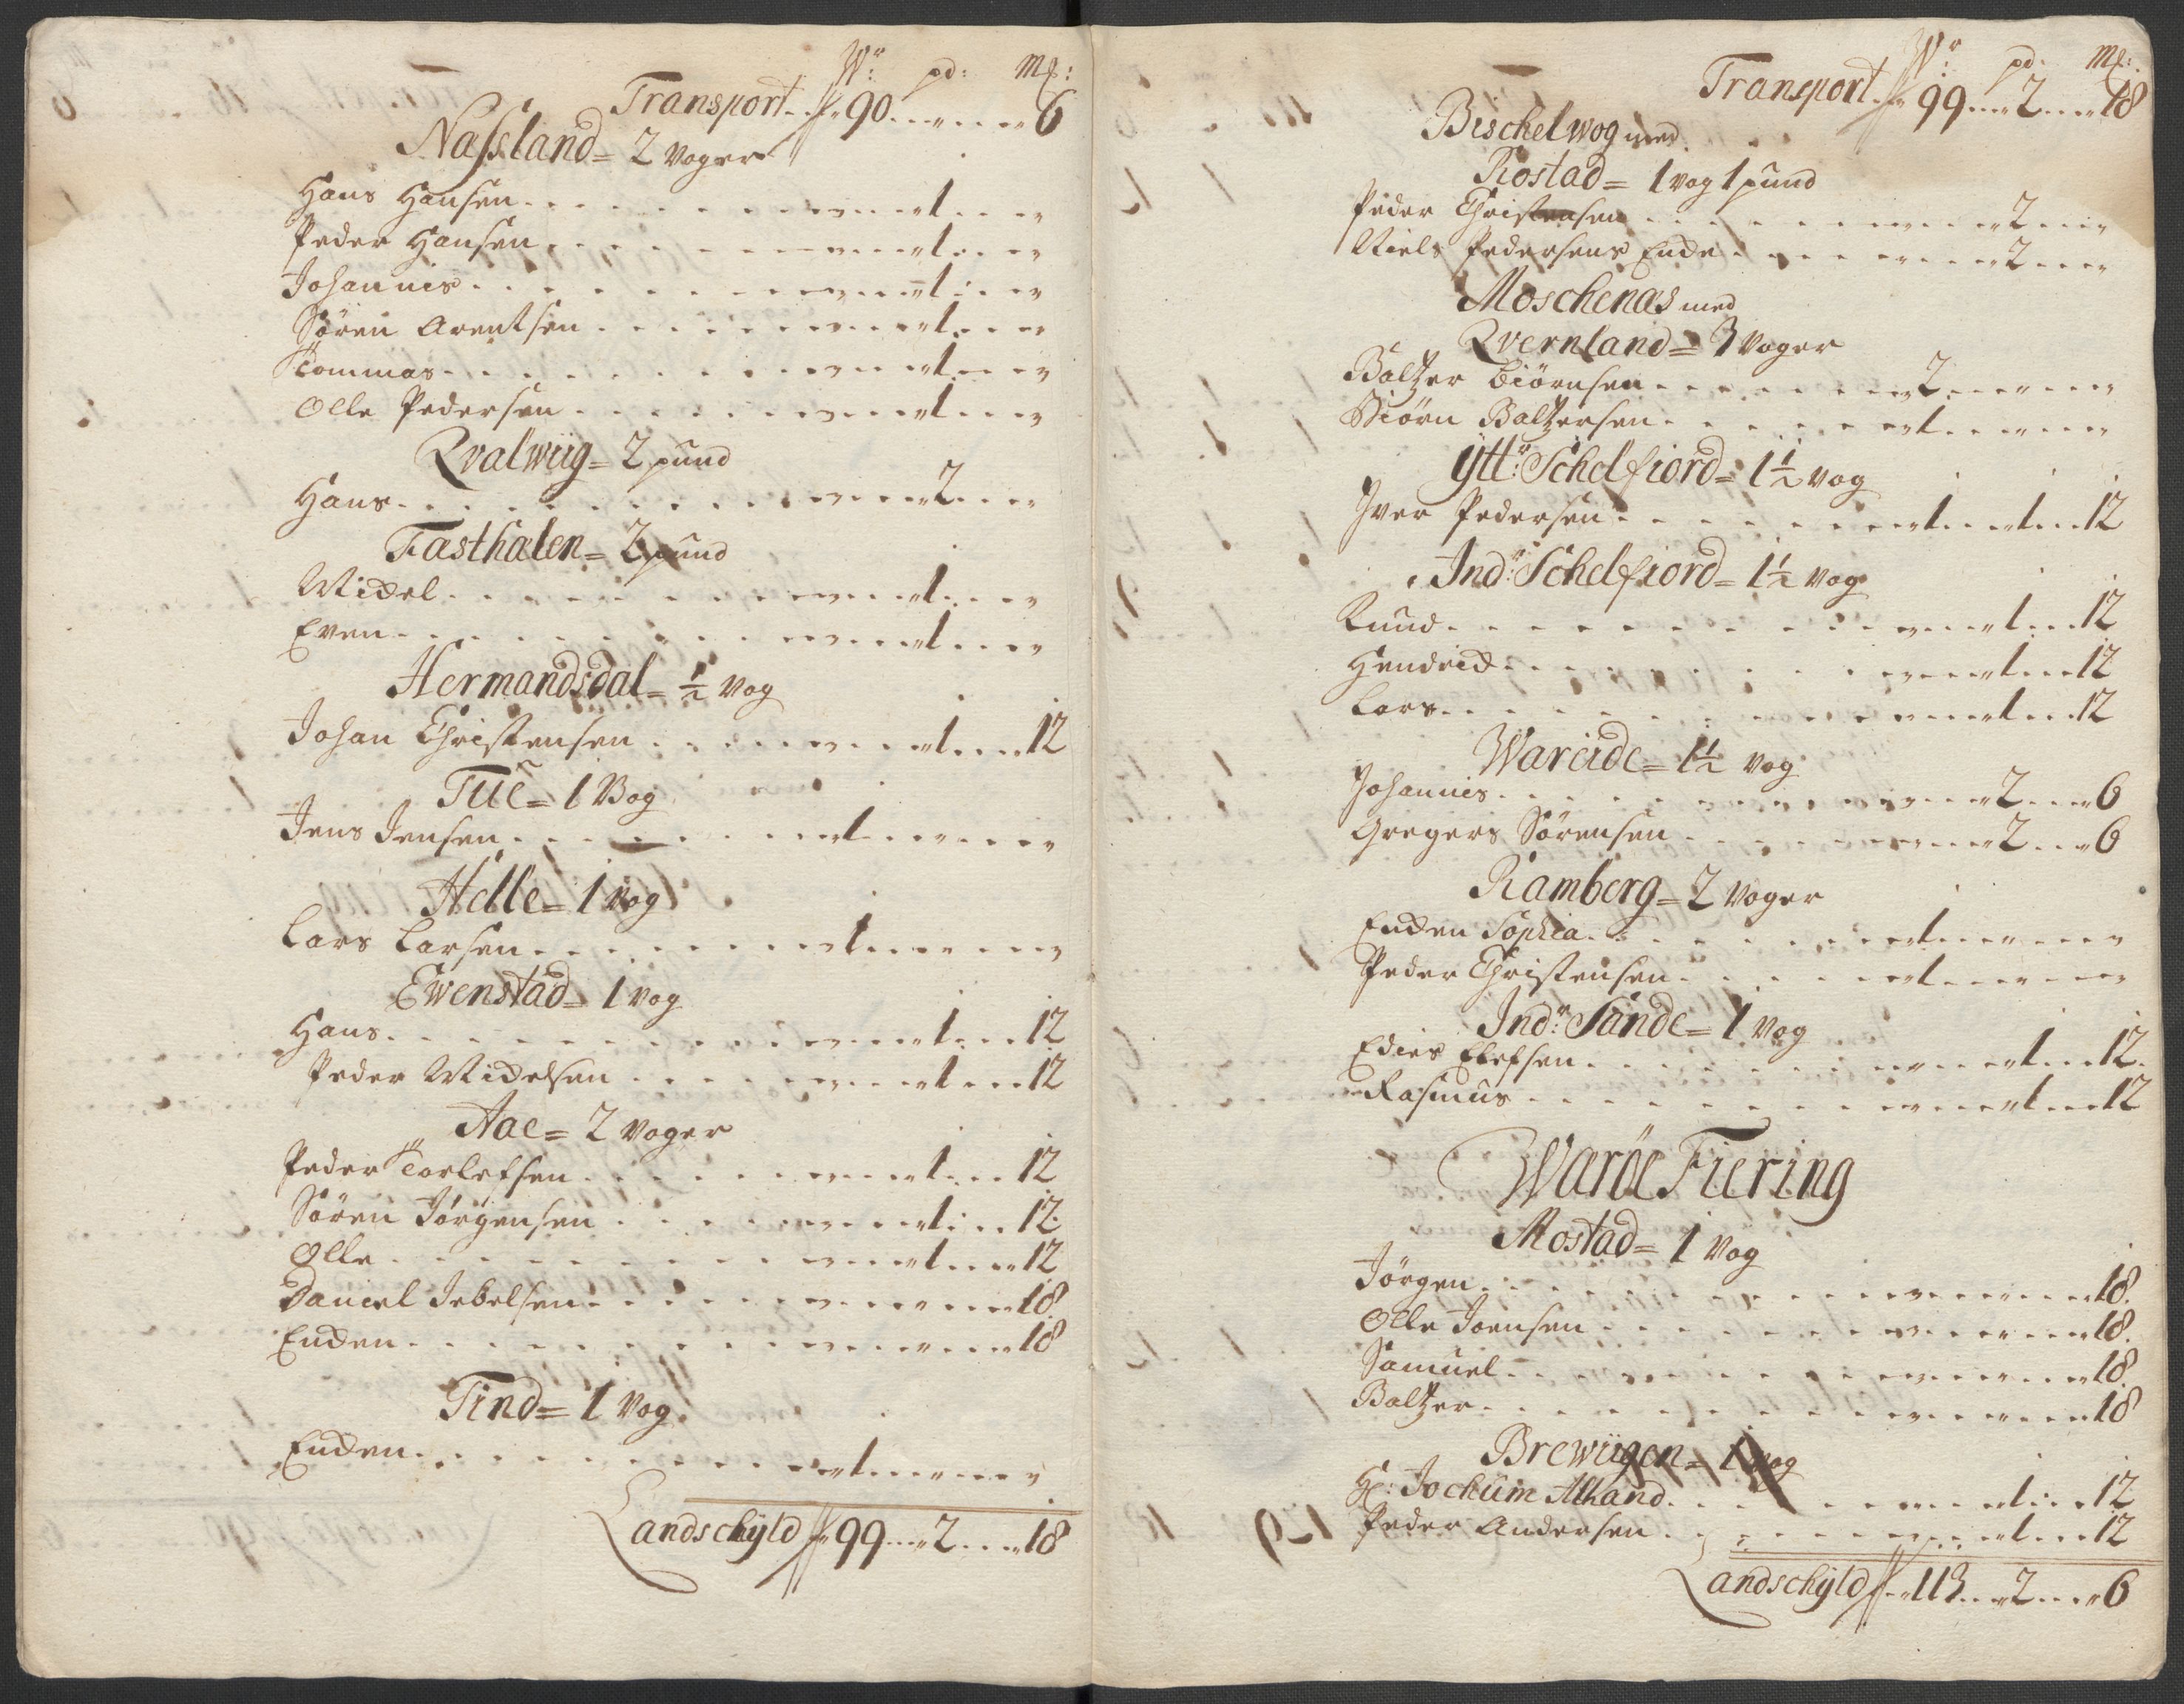 Wr: pd: Mk:
Transport 90 " 6
Nassland = 2 Voger
Hans Hansen " 1 "
Peder Hansen " 1 "
Johannis " 1 "
Sören Arentsen " 1 "
Tommas " 1 "
Olle Pedersen " 1 "
Qvalwiig = 2 pund
Hans " 2 "
Fasthalen = 2 pund
Michel " 1 "
Even " 1 "
Hermandsdal = ½ Vog
Johan Christensen " 1 12
Tue = 1 Vog
Jens Jensen 1 " "
Helle = 1 Vog
Lars Larsen 1 " "
Ewenstad = 1 Vog
Hans " 1 12
Peder Michelsen " 1 12
Aae = 2 Voger
Peder Torlefsen " 1 12
Sören Jörgensen " 1 12
Olle " 1 12
Daniel Jebelsen " " 18
Encken " " 18
Tind = 1 Vog
Encken 1 " "
Landschyld 99 2 18
Wr: pd: Mk:
Transport 99 2 18
Bischelwog med
Rostad = 1 Vog 1 pund
Peder Christensen " 2 "
Niels Pedersens Encke " 2 "
Moschenas med
Qvernland = 3 Voger
Baltzer Biörnsen 2 " "
Biörn Baltzersen 1 " "
Ytt: Schelfiord = 1½ Vog
Iver Pedersen 1 1 12
Indr: Schelfiord = 1½ Vog
Knud " 1 12
Hendrich " 1 12
Lars " 1 12
Wareide = 1½ Vog
Johannes " 2 6
Gregers Sörensen " 2 6
Ramberg = 2 Voger
Encken Sophia 1 " "
Peder Christensen 1 " "
Indr: Sande = 1 Vog
Edies Elefsen " 1 12
Rasmus " 1 12
Waröe Fiering
Mostad = 1 Vog
Jörgen " " 18
Olle Joensen " " 18
Samuel " " 18
Baltzer " " 18
Brewiigen = 1 Vog
Hr: Jochum Alhand " 1 12
Peder Andersen " 1 12
Landschyld 113 2 6